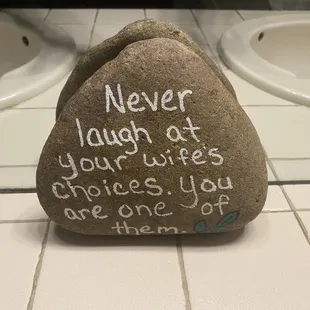 Never
laugh at
your wife's
choices. You
are one of
them.